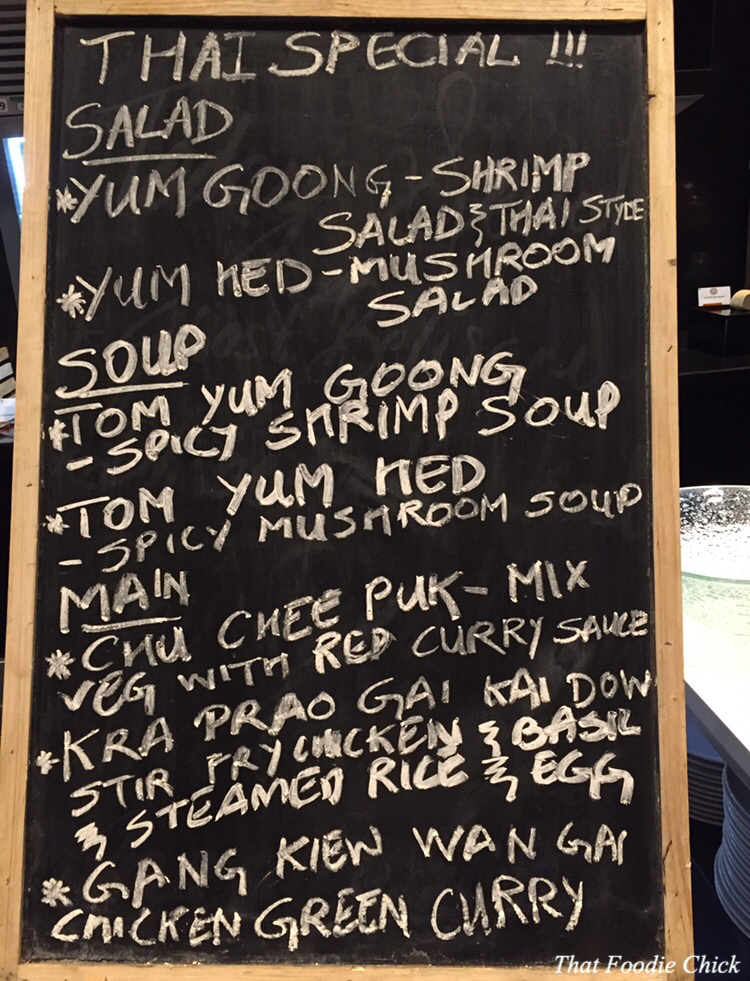 THAI SPECIAL !!!
SALAD
*YUM GOONG - SHRIMP
SALAD & THAI STYLE
*YUM HED - MUSHROOM
SALAD
SOUP
*TOM YUM GOONG
- SPICY SHRIMP SOUP
*TOM YUM HED
- SPICY MUSHROOM SOUP
MAIN
*CHU CHEE PUK - MIX
VEG WITH RED CURRY SAUCE
*KRA PRAO GAI KAI DOW
STIR FRY CHICKEN & BASIL
& STEAMED RICE & EGG
*GANG KIEW WAN GAI
CHICKEN GREEN CURRY
That Foodie Chick